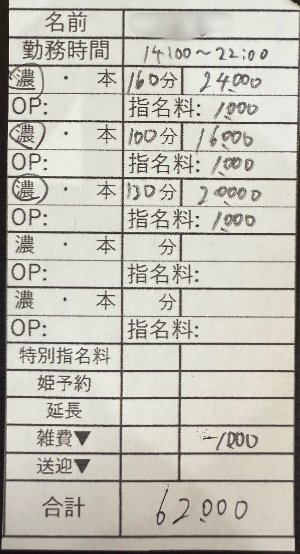 名前
勤務時間 14:00～22:00
濃 ・ 本 160分 24.000
OP: 指名料: 1.000
濃 ・ 本 100分 16.000
OP: 指名料: 1.000
濃 ・ 本 120分 20.000
OP: 指名料: 1.000
濃 ・ 本 分
OP: 指名料:
濃 ・ 本 分
OP: 指名料:
特別指名料
姫予約
延長
雑費▼ -1.000
送迎▼
合計 62.000